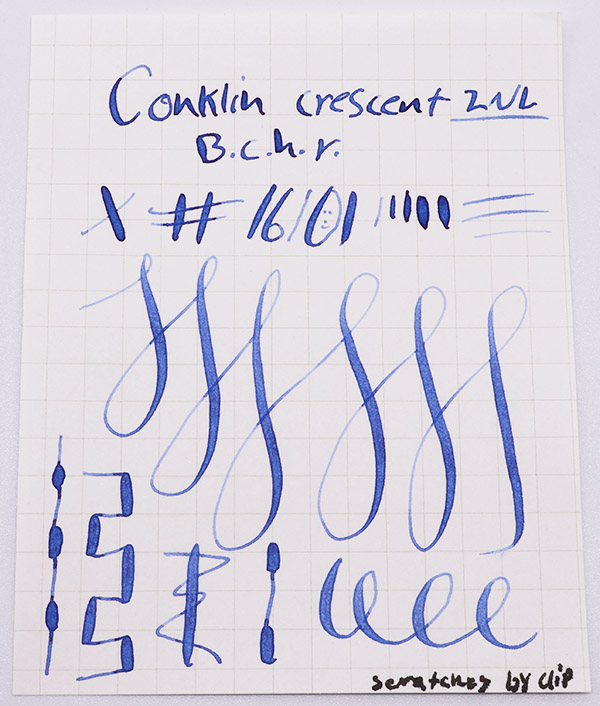 Conklin crescent 2NL
B.c.h.r.
X # 16/01
scratches by clip